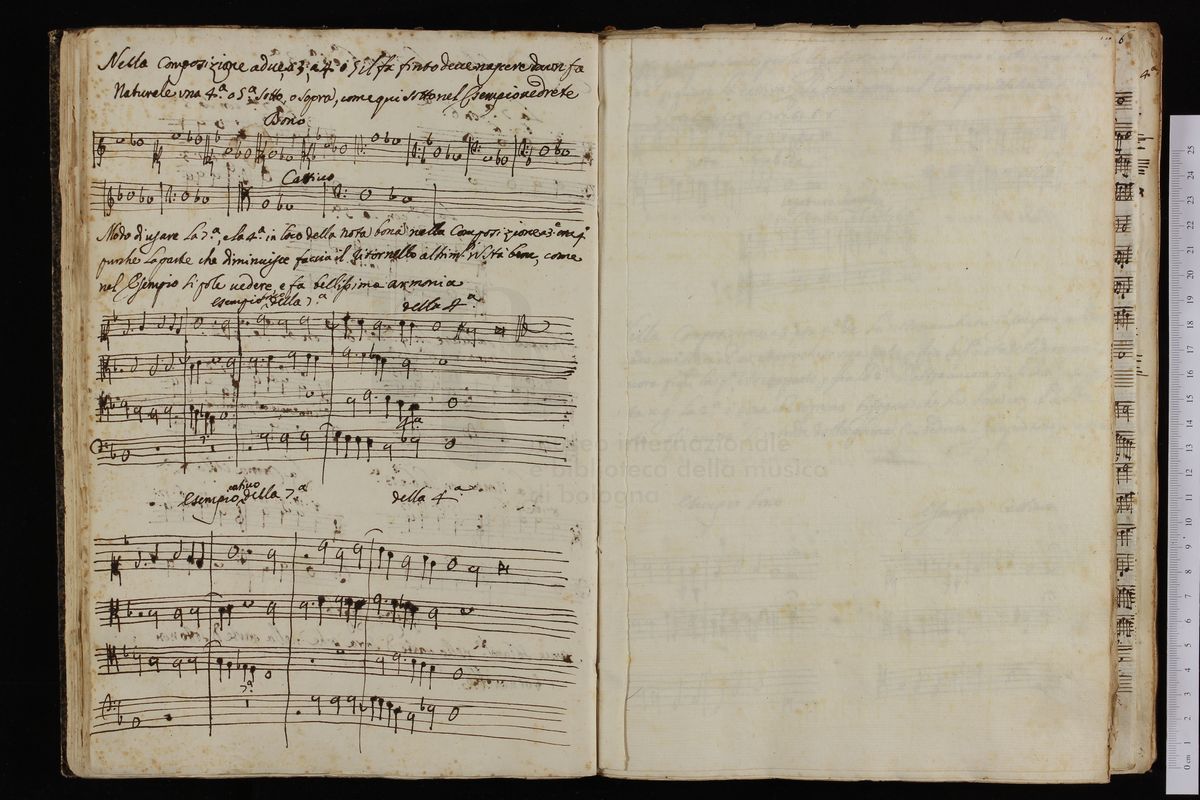 Nella Composizione a due, a 3, a 4. o 5 il fa finto deve nascere da un fa
Naturale una 4.ª o 5.ª sotto, o sopra, come qui sotto nel Esempio vedrete
Bono
Cattivo
Modo di usare la 7.ª, e la 4.ª in loco della nota bona nella Composizione a 3. o a 4.
purche la parte che diminuisce faccia il Ritornello si sta bene, come
nel Esempio si pole vedere, e fa bellissima armonia
Esempio della 7.ª
della 4.ª
4.ª
Esempio cativo della 7.ª
della 4.ª
7.ª
museo internazionale
e biblioteca della musica
di bologna
4.ª
0 cm 1 2 3 4 5 6 7 8 9 10 11 12 13 14 15 16 17 18 19 20 21 22 23 24 25